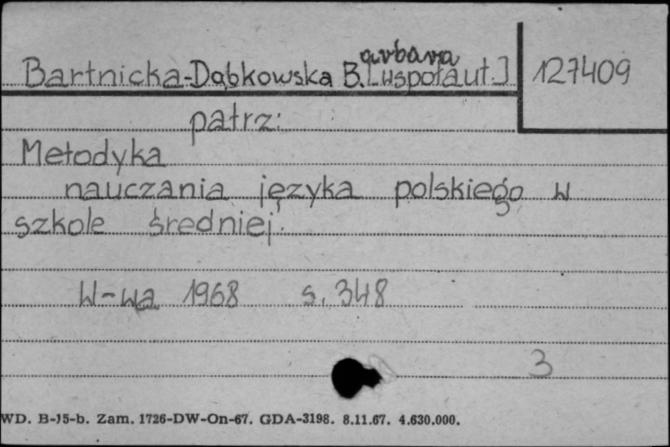 arbara
Bartnicka-Dąbkowska B. [współaut.] 127409
patrz:
Metodyka
nauczania języka polskiego w
szkole średniej.
W-wa 1968 s. 348
3
WD. B-15-b. Zam. 1726-DW-On-67. GDA-3198. 8.11.67. 4.630.000.